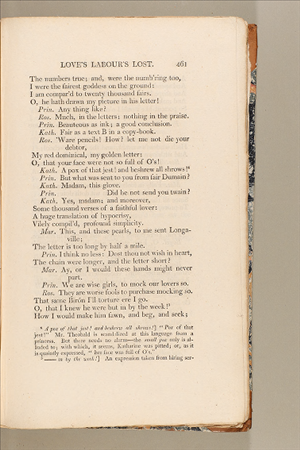 LOVE'S LABOUR'S LOST. 461
The numbers true; and, were the numb'ring too,
I were the fairest goddess on the ground:
I am compar'd to twenty thousand fairs.
O, he hath drawn my picture in his letter!
Prin. Any thing like?
Ros. Much, in the letters; nothing in the praise.
Prin. Beauteous as ink; a good conclusion.
Kath. Fair as a text B in a copy-book.
Ros. 'Ware pencils! How? let me not die your
debtor,
My red dominical, my golden letter:
O, that your face were not so full of O's!
Kath. A pox of that jest! and beshrew all shrows!
Prin. But what was sent to you from fair Dumain?
Kath. Madam, this glove.
Prin. Did he not send you twain?
Kath. Yes, madam; and moreover,
Some thousand verses of a faithful lover:
A huge translation of hypocrisy,
Vilely compil'd, profound simplicity.
Mar. This, and these pearls, to me sent Longa-
ville;
The letter is too long by half a mile.
Prin. I think no less: Dost thou not wish in heart,
The chain were longer, and the letter short?
Mar. Ay, or I would these hands might never
part.
Prin. We are wise girls, to mock our lovers so.
Ros. They are worse fools to purchase mocking so.
That same Birón I'll torture ere I go.
O, that I knew he were but in by the week!
How I would make him fawn, and beg, and seek;
A pox of that jest! and beshrew all shrows!] "Pox of that
jest!" Mr. Theobald is scandalized at this language from a
princess. But there needs no alarm—the small pox only is al-
luded to; with which, it seems, Katharine was pitted; or, as it
is quaintly expressed, "her face was full of O's."
—— in by the week!] An expression taken from hiring ser-